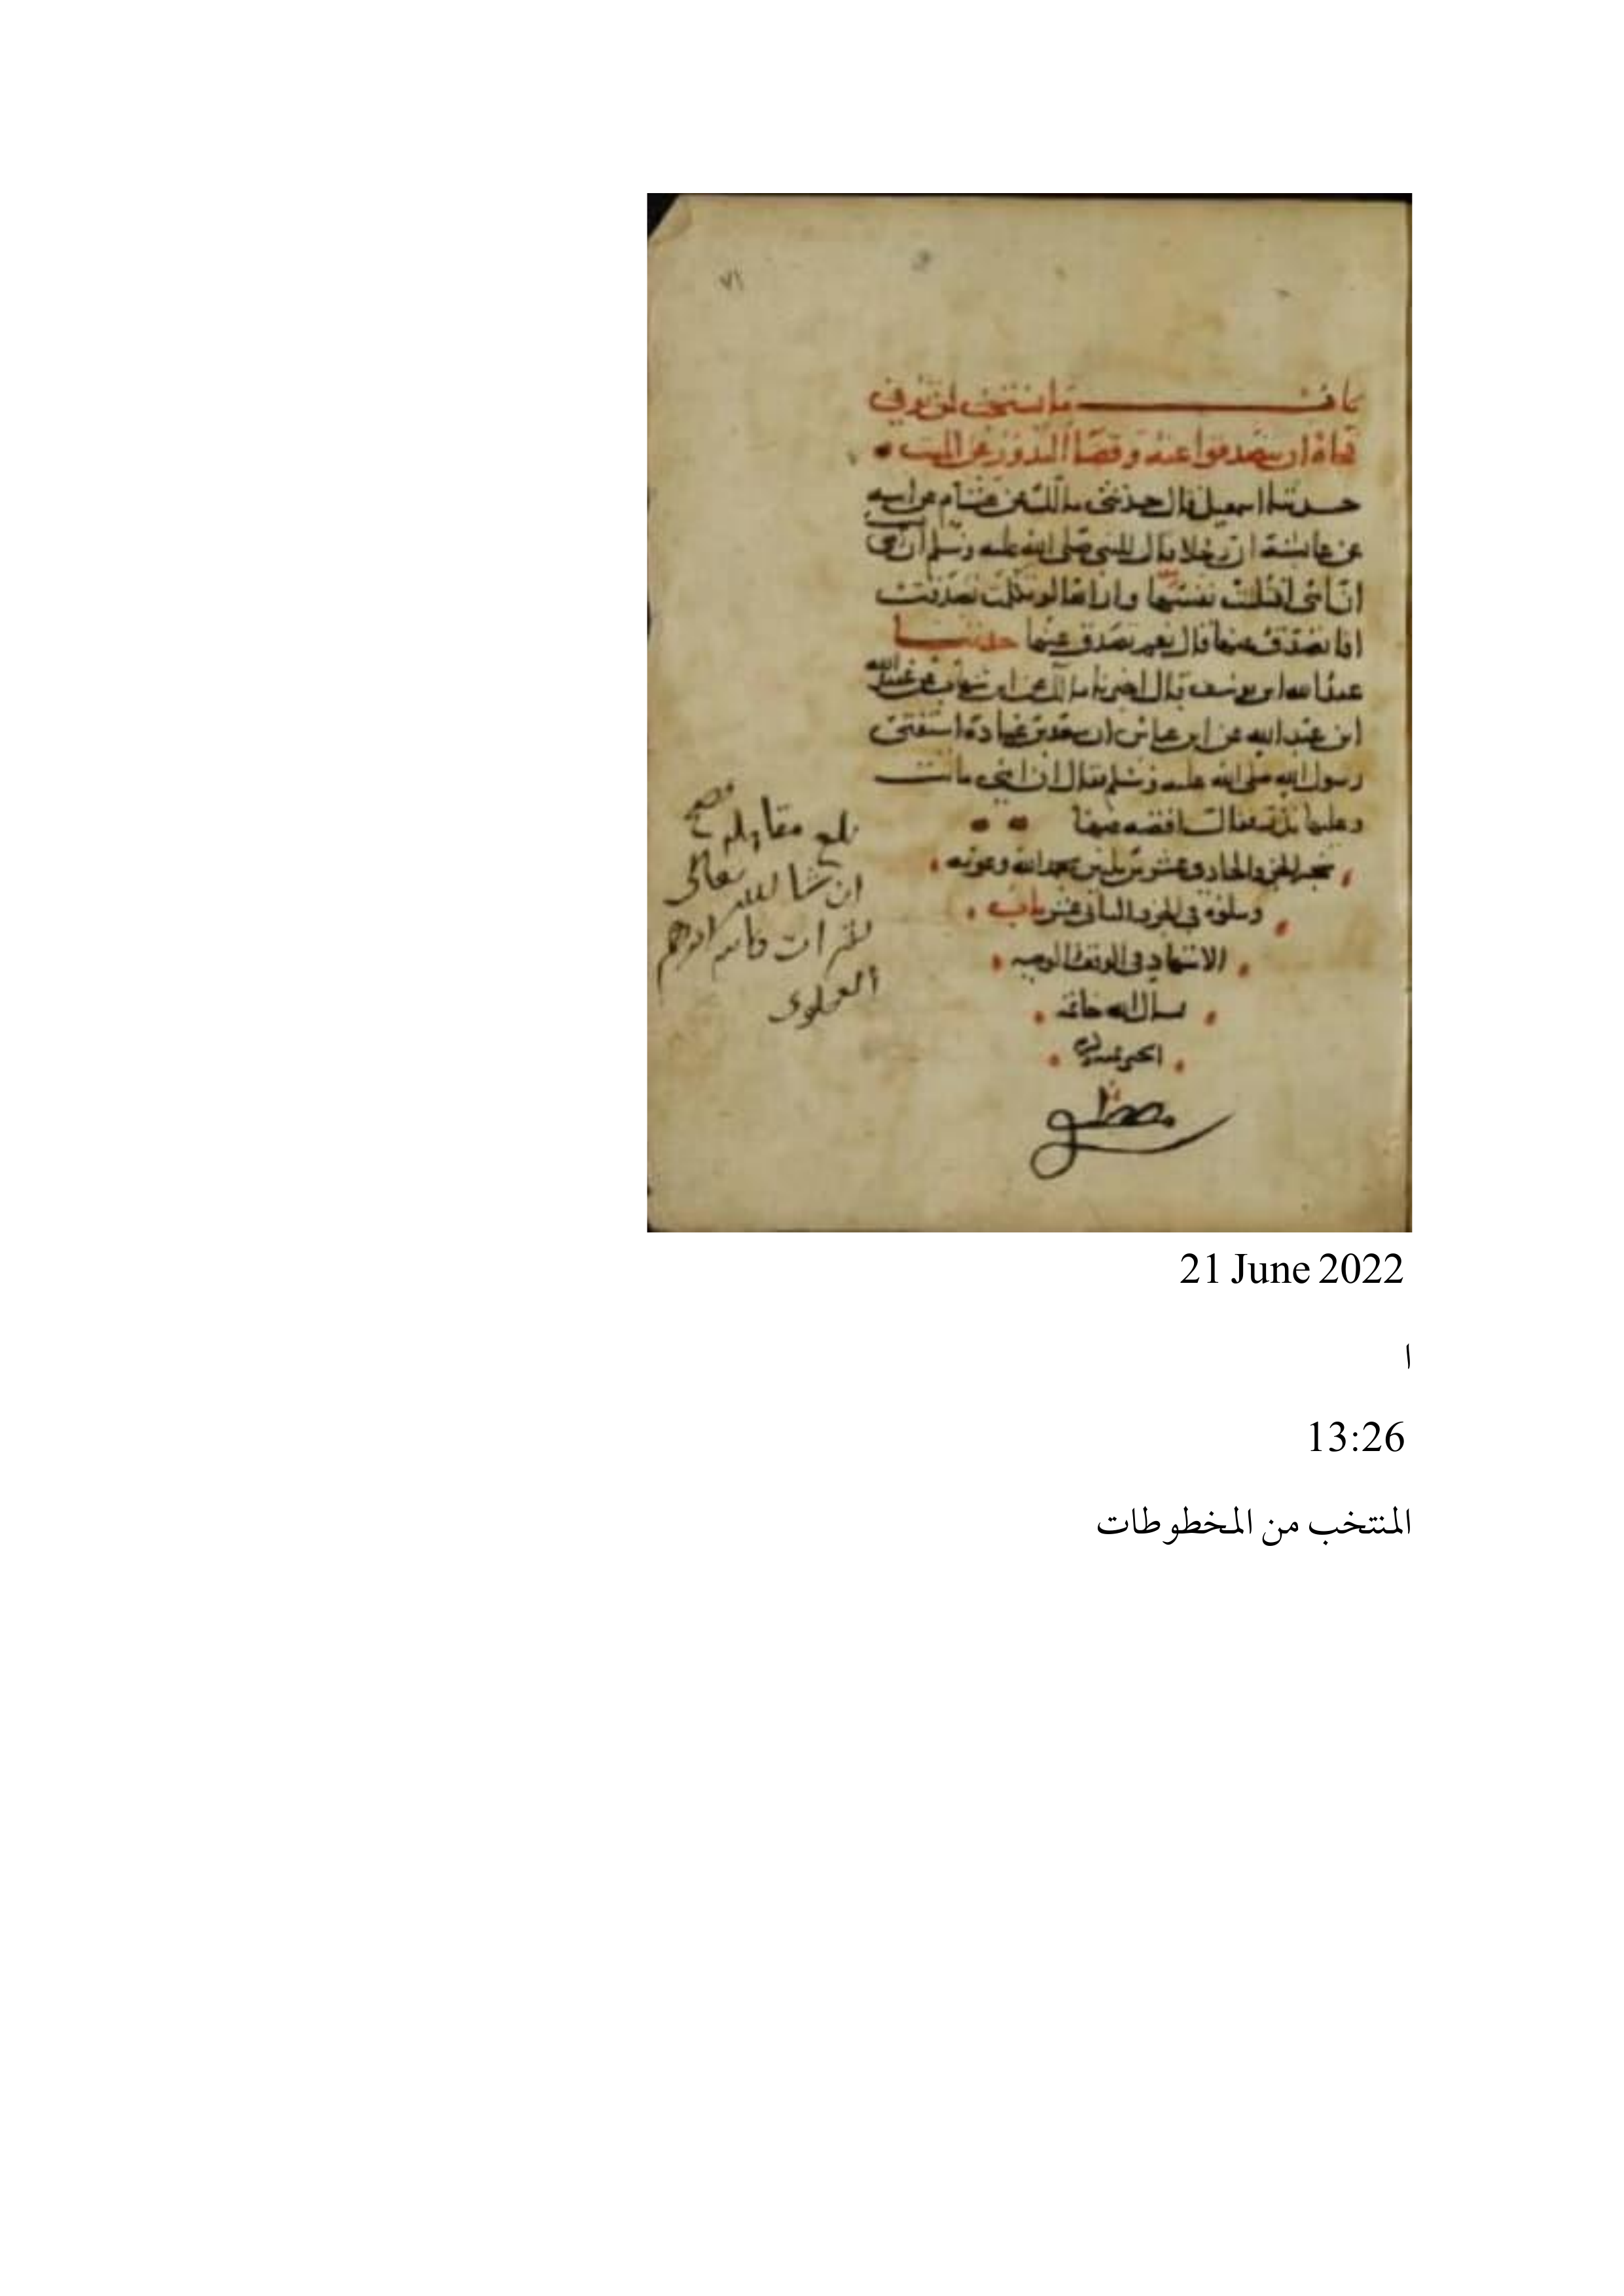 ٧١
باب ما يستحب لمن توفي
فجاة ان يتصدقوا عنه وقضا النذور عن الميت
حدثنا اسمعيل قال حدثني مالك عن هشام عن ابيه
عن عائشة ان رجلا قال للنبي صلى الله عليه وسلم
ان امي افتلتت نفسها واراها لو تكلمت تصدقت
افاتصدق عنها قال نعم تصدق عنها حدثنا
عبد الله ابن يوسف قال اخبرنا مالك عن ابن شهاب عن عبيد الله
ابن عبد الله عن ابن عباس ان سعد بن عبادة استفتى
رسول الله صلى الله عليه وسلم فقال ان امي ماتت
وعليها نذر فقال اقضه عنها
نجز الجزو الحادي وعشر من بحمد الله وعونه
وىتلوه في الجزو الثاني عشر باب
الاشهاد في الوقف والوصية
نسال الله خاتمة
الخير
بلغ مقابلة فصح
ان شا الله تعالى
ابراهم
العلوي
21 June 2022
ا
13:26
المنتخب من المخطوطات